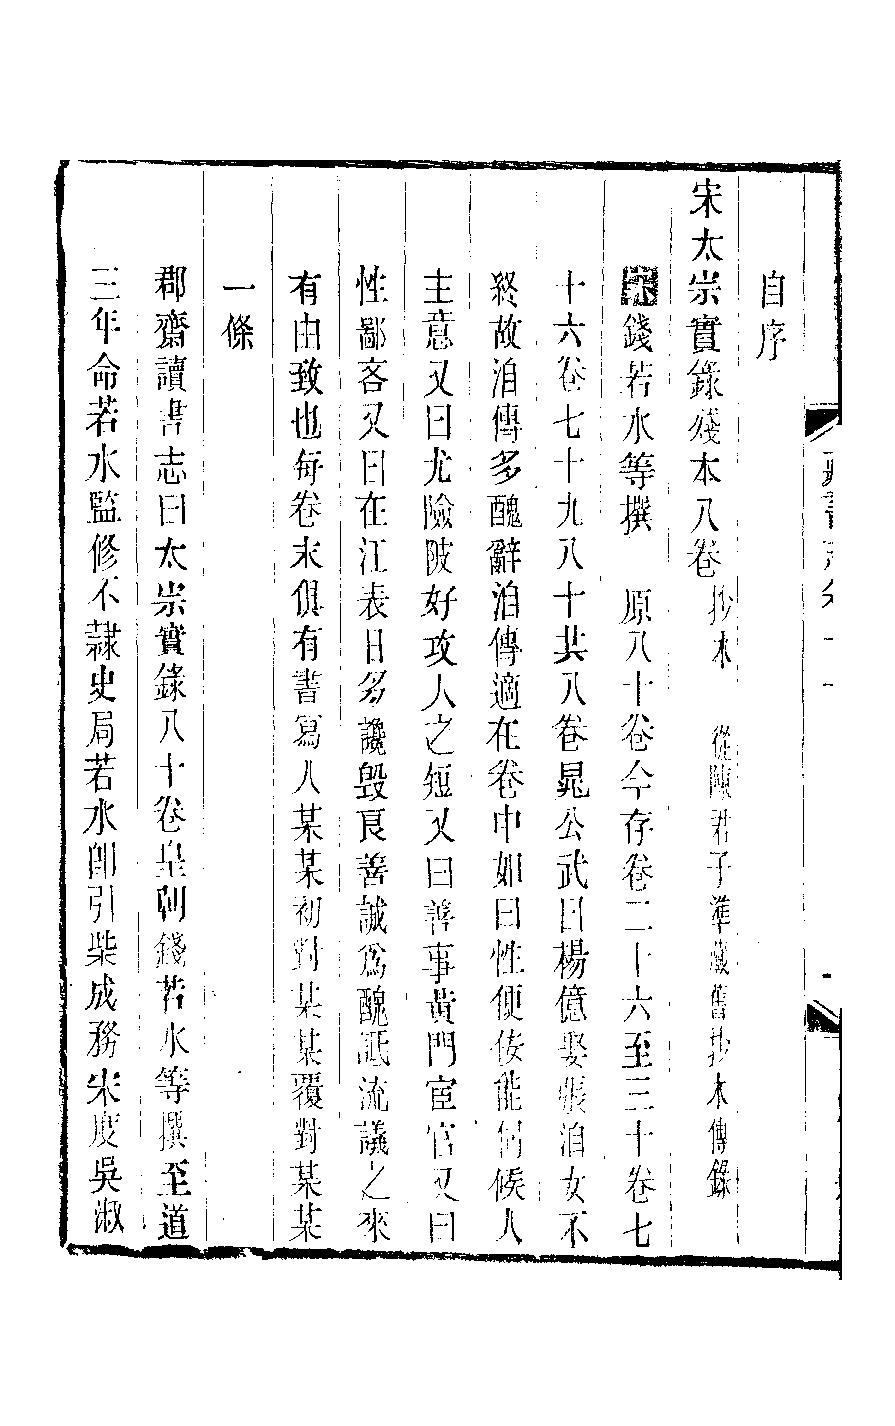 自序
宋太宗實錄殘本八卷 抄本 從陳君子準藏舊抄本傳錄
宋錢若水等撰 原八十卷今存卷二十六至三十卷七
十六卷七十九八十共八卷晁公武曰楊億娶張洎女不
終故洎傳多醜辭洎傳適在卷中如曰性便佞能伺候人
主意又曰尤險詖好攻人之短又曰善事黃門宦官又曰
性鄙吝又曰在江表日多讒毁良善誠爲醜詆流議之來
有由致也每卷末俱有書寫人某某初對某某覆對某某
一條
郡齋讀書志曰太宗實錄八十卷皇朝錢若水等撰至道
三年命若水監修不隷史局若水卽引柴成務宋度吳淑